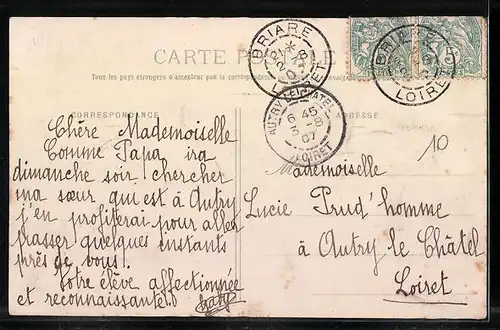 CARTE POSTALE
Tous les pays étrangers n'acceptent pas la correspondance
CORRESPONDANCE
ADRESSE
BRIARE
LOIRET
BRIARE
LOIRET
AUTRY-LE-CHATEL
6 45
5 -8
07
LOIRET
5
10
Chère Mademoiselle
Comme Papa ira
dimanche soir chercher
ma sœur qui est à Autry
j'en profiterai pour aller
passer quelques instants
près de vous.
Votre élève affectionnée
et reconnaissante.
Mademoiselle
Lucie Prud'homme
à Autry le Châtel
Loiret